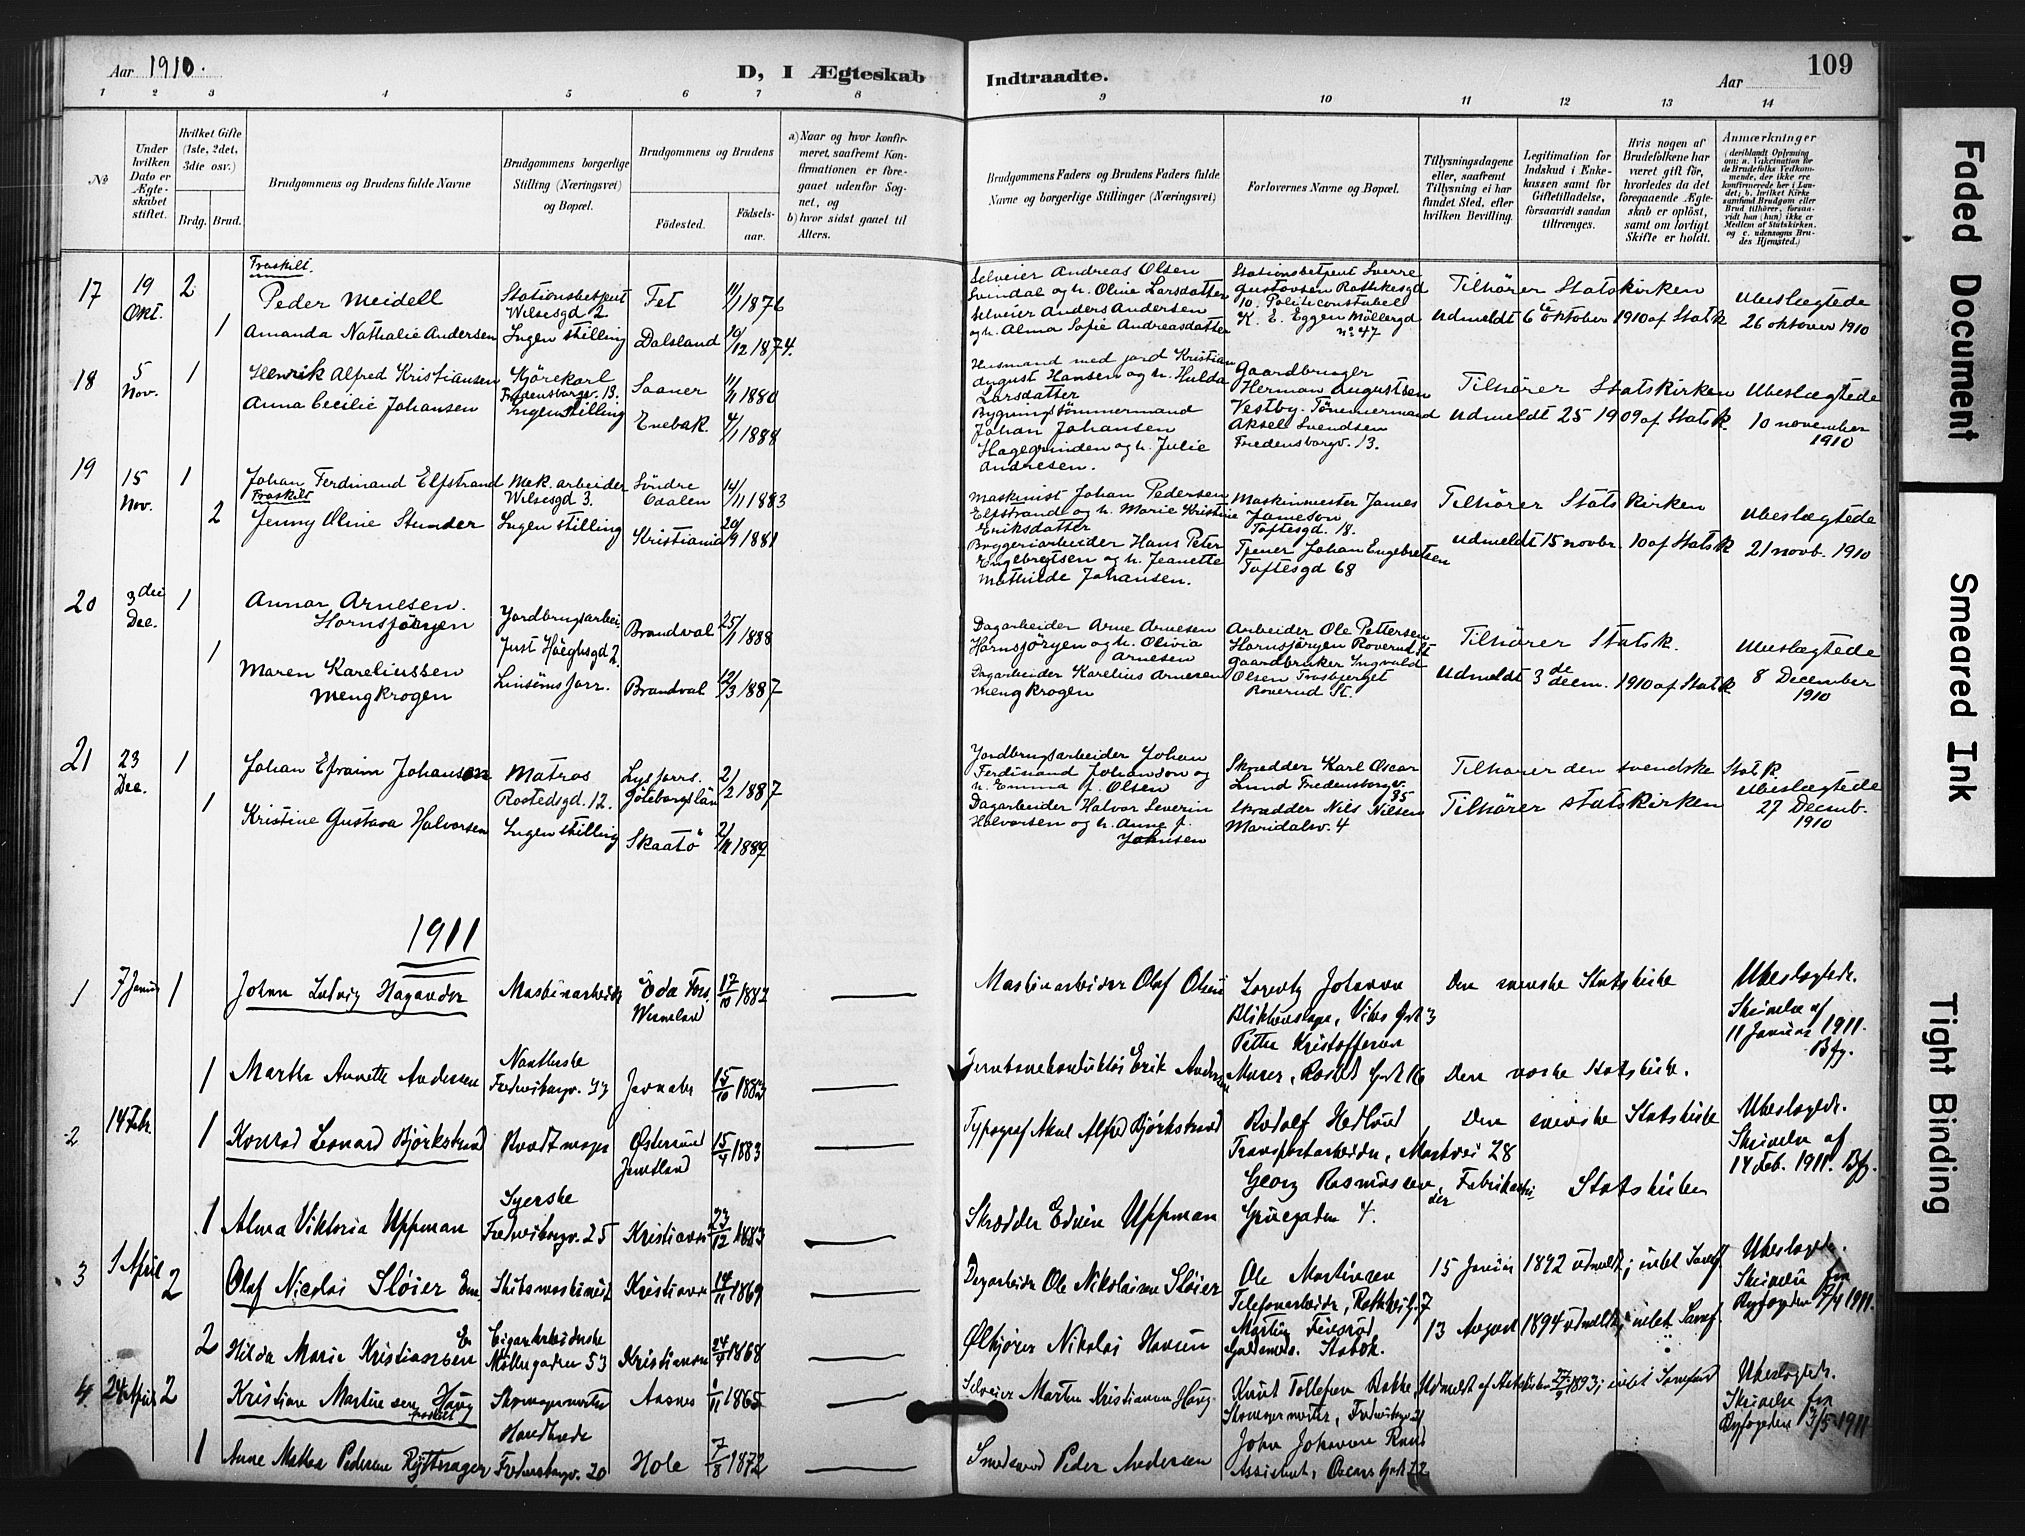 Aar 1910.
D, I Ægteskab
Indtraadte.
Aar
109
1 2 3 4 5 6 7 8 9 10 11 12 13 14
№
Under hvilken Dato er Ægteskabet stiftet.
Hvilket Gifte (1ste, 2det, 3die osv.)
Brdg. Brud.
Brudgommens og Brudens fulde Navne
Brudgommens borgerlige Stilling (Næringsvei) og Bopæl.
Brudgommens og Brudens
Fødested.
Fødselsaar.
a) Naar og hvor konfirmeret, saafremt Konfirmationen er foregaaet udenfor Sognet, og
b) hvor sidst gaaet til Alters.
Brudgommens Faders og Brudens Faders fulde Navne og borgerlige Stillinger (Næringsvei)
Forlovernes Navne og Bopæl.
Tillysningsdagene eller, saafremt Tillysning ei har fundet Sted, efter hvilken Bevilling.
Legitimation for Indskud i Enkekassen samt for Giftetilladelse, forsaavidt saadan tiltrænges.
Hvis nogen af Brudefolkene har været gift før, hvorledes da det foregaaende Ægteskab er opløst, samt om lovligt Skifte er holdt.
Anmærkninger
17 19 Okt. 2
Fraskilt.
Peder Meidell
Stationsbetjent
Wilsesgd 2
Fet
11/1 1876
Selveier Andreas Olsen
Svendal og h. Oline Larsdatter
Stationsbetjent Sverre
Gustavsen Rathkesgd
10. Politiconstabel
K. E. Eggen Møllergd
no 47
Tilhører Statskirken
Ubeslægtede
1 Amanda Nathalie Andersen
Ingen stilling
Dalsland
10/12 1874.
Selveier Anders Andersen
og h. Alma Sofie Andreasdatter
Udmeldt 6te oktober 1910 af Statsk
26 oktover 1910
18 5 Nov. 1
Henrik Alfred Kristiansen
Kjørekarl
Fredensborgv. 13.
Saaner
11/1 1880
Husmand med jord Kristian
August Hansen og h. Hulda
Larsdatter
Gaardbruger
Herman Augustsen
Vestby. Tømmermand
Aksel Svendsen
Fredensborgv. 13.
Tilhører Statskirken
Ubeslægtede
Anna Cecilie Johansen
Ingen stilling
Enebak.
4/1 1888
Bygningstømmermand
Johan Johansen
Hagegrinden og h. Julie
Andresen.
Udmeldt 25 1909 af Statsk.
10 november
1910
19 15 Nov. 1
Johan Ferdinand Elfstrand
Mek. arbeider
Wilsesgd 3.
Søndre
Odalen
14/11 1883
Maskinist Johan Pedersen
Elfstrand og h. Marie Kristine
Eriksdatter
Maskinmester James
Jameson
Toftesgd. 18.
Tilhører Statskirken
Ubeslægtede
2
Fraskilt
Jenny Oline Stunder
Ingen stilling
Kristiania
20/9 1881
Bryggeriarbeider Hans Peter
Engebretsen og h. Jeanette
Mathilde Johansen.
Tjener Johan Engebretsen
Toftesgd 68
Udmeldt 15 novbr. 10 af Statsk
21 novb. 1910
20 3die Dec. 1
Annar Arnesen.
Hornsjøryen
Jordbrugsarbei.
Just Høeghsgd 2.
Brandval
25/1 1888
Dagarbeider Arne Arnesen
Hornsjøryen og h. Olivia
Arnesen
Arbeider Ole Pettersen
Hornsjøryen Roverud St
Gaardbruker Ingvald
Olsen
Roverud St.
Tilhører Statsk.
Ubeslægtede
1
Maren Kareliussen
Mengkrogen
Linsømsforr.
Brandval
12/3 1887
Dagarbeider Karelius Arnesen
Mengkrogen
Udmeldt 3de decm. 1910 af Statsk
8 December
1910
21 23 Dec. 1
Johan Efraim Johanson
Matros
Rostedsgd. 12.
Lysfjorrs.
Göteborgslän
2/2 1887
Jordbrugsarbeider Johan
Ferdinand Johanson og
h. Emma f. Olsen
Skrædder Karl Oscar
Lund Fredensborgv.
85
Tilhører den svendske Statsk.
Ubeslægtede
1
Kristine Gustava Halvorsen
Ingen stilling
Skaatö
2/11 1889
Dagarbeider Halvor Severin
Halvorsen og h. Anne f.
Johnsen
Skrædder Nils Nilsen
Maridalsv. 4
Tilhører Statskirken
27 Decemb.
1910
1911
1 7 Januar 1
Johan Ludvig Hagander
Maskinarbeider
Eda Fors,
Wermland
17/10 1882
Maskinarbeider Olaf Olsen
Lorentz Johansen
Blikkenslager, Vibes Gd 3
Petter Kristoffersen
Den svenske Statskirke
Ubeslægtede.
Skrivelse af
11 Januar 1911.
Bfg.
1 Martha Annette Andersen
Fredensborgv. 33
Jevnaker
15/10 1883
Erik Andersen
Murer, Rosted Gd 16
Den norske Statskirke.
2 14 Feb. 1
Konrad Leonard Björkstrand
Østersund
Jemtland
15/4 1883
Typograf Axel Alfred Bjørkstrand
Rudolf Hedlund
Transportarbeider, Maltvei 28
Den svenske Statskirke
Ubeslægtede.
Skrivelse af
14 Feb. 1911. Bfg.
1 Alma Viktoria Uppman
Syerske
Fredensborgv. 25
Kristiania
23/12 1883
Skrædder Edvin Uppman
Georg Rasmussen, Fabrikarbei
der
Grünegaden 4.
Statskirken
3 1 April 2
Olaf Nicolai Sløier
Skibsmaskinist
Kristiania
14/11 1869
Dagarbeider Ole Nikolaisen Sløier
Ole Martinsen
Telefonarbeider, Rathkesg. 7
15 Januar 1892 udmeldt; intet Samf
Ubeslægtede.
Skrivelse fra
Byfogden 7/4 1911.
2 Hilda Marie Kristiansen
Cigararbeiderske
Møllergaden 53
Kristiania
24/9 1868
Ølkjører Nikolai Hansen
Martin
13 August 1894 udmeldt; intet Samf.
4. 24 April 2
Kristian Martinsen Haug
fraskilt
Skomagermester
Aasnes
1/11 1865
Selveier Martin Kristiansen Haug
Knut Tollefsen Bakke,
Skomagermester, Fredensborgv. 21
Udmeldt af Statskirken 27/9 1893; intet Samfund
Ubeslægtede.
Skrivelse fra
Byfogden 3/5 1911
1 Anne Mathea Pedersen Ryttrager
Fredensborgv. 20
Hole
7/8 1872
Smedsvend Peder Andersen
John Johansen Rud
Assistent, Oscars Gd 22
Faded Document
Smeared Ink
Tight Binding